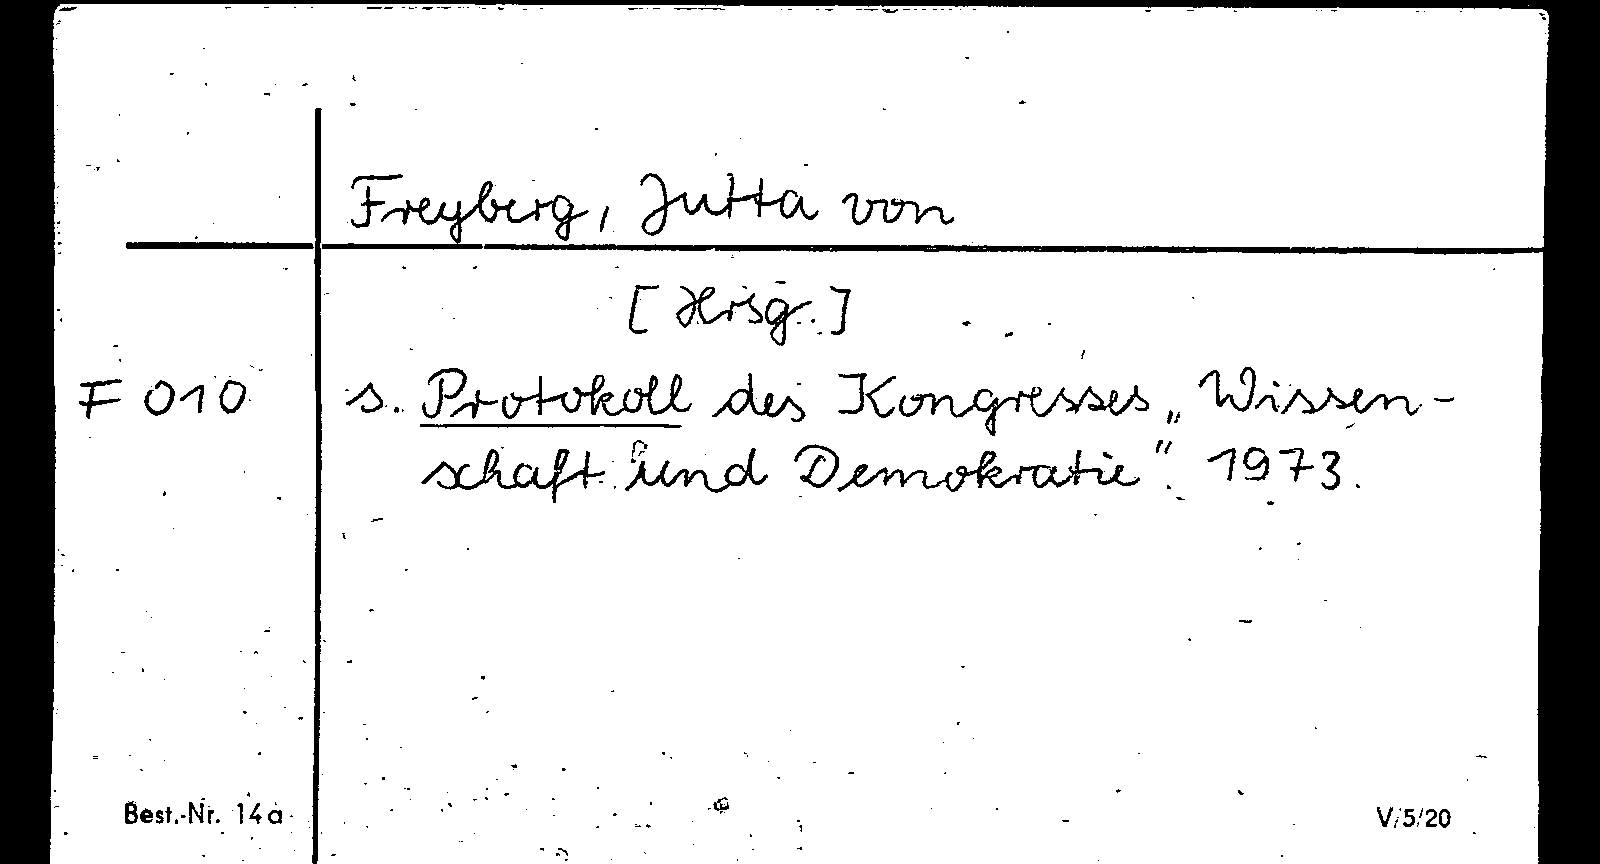 Freyberg, Jutta von
[Hrsg.]
F 010 s. Protokoll des Kongresses „Wissen-
schaft und Demokratie". 1973.
Best.-Nr. 14a V/5/20